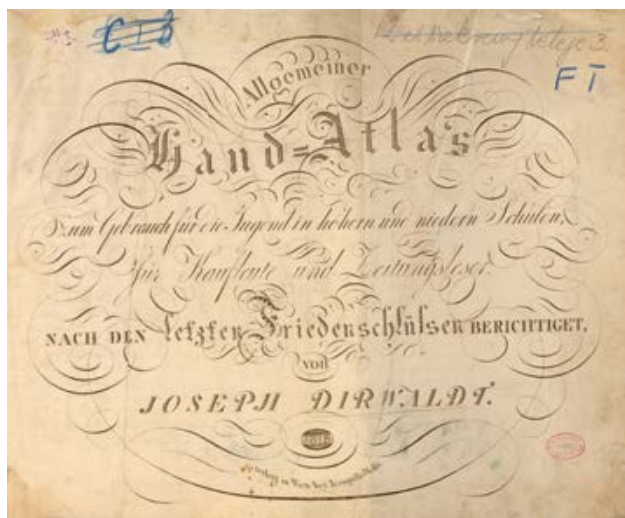 CIB
3.
FT
Allgemeiner
Hand=Atlas
zum Gebrauch für die Jugend in höhern und niedern Schulen,
für Kaufleute und Zeitungsleser.
NACH DEN letzten Friedenschlüssen BERICHTIGET,
von
JOSEPH DIRWALDT.
Wien bey